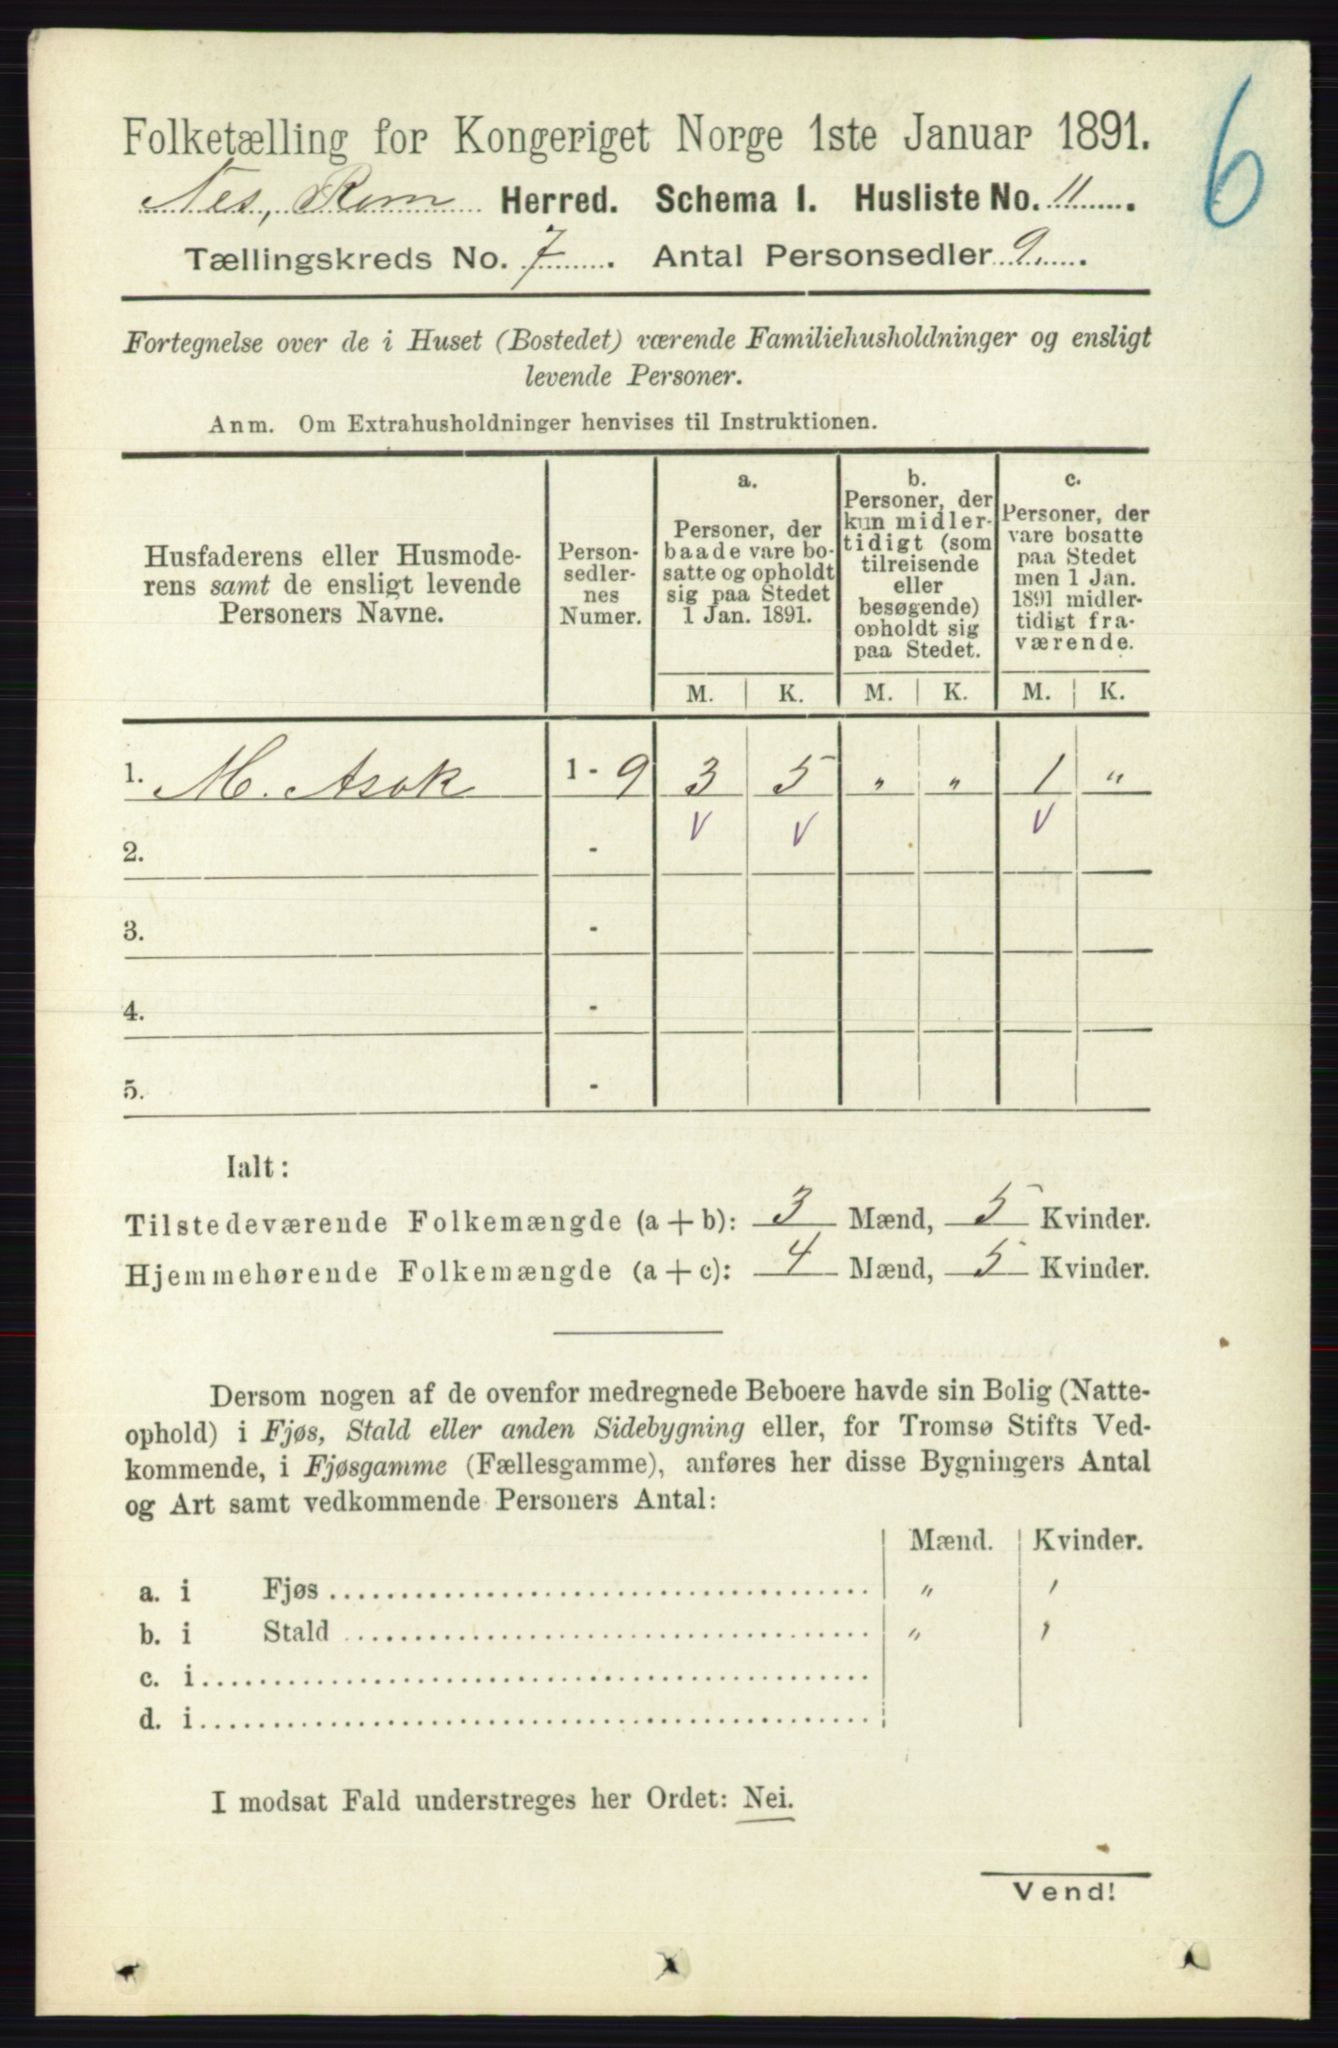 6
Folketælling for Kongeriget Norge 1ste Januar 1891.
Nes, Rom Herred. Schema I. Husliste No. 11
Tællingskreds No. 7. Antal Personsedler 9.
Fortegnelse over de i Huset (Bostedet) værende Familiehusholdninger og ensligt
levende Personer.
Anm. Om Extrahusholdninger henvises til Instruktionen.
Husfaderens eller Husmode-
rens samt de ensligt levende
Personers Navne.
Person-
sedler-
nes
Numer.
a.
Personer, der
baade vare bo-
satte og opholdt
sig paa Stedet
1 Jan. 1891.
b.
Personer, der
kun midler-
tidigt (som
tilreisende
eller
besøgende)
opholdt sig
paa Stedet.
c.
Personer, der
vare bosatte
paa Stedet
men 1 Jan.
1891 midler-
tidigt fra-
værende.
M. K. M. K. M. K.
1. M. Asak 1 - 9 3 5 " " 1 "
V V V
2. -
3. -
4. -
5. -
Ialt:
Tilstedeværende Folkemængde (a + b): 3 Mænd, 5 Kvinder.
Hjemmehørende Folkemængde (a + c): 4 Mænd, 5 Kvinder.
Dersom nogen af de ovenfor medregnede Beboere havde sin Bolig (Natte-
ophold) i Fjøs, Stald eller anden Sidebygning eller, for Tromsø Stifts Ved-
kommende, i Fjøsgamme (Fællesgamme), anføres her disse Bygningers Antal
og Art samt vedkommende Personers Antal:
Mænd. Kvinder.
a. i Fjøs " '
b. i Stald " '
c. i
d. i
I modsat Fald understreges her Ordet: Nei.
Vend!